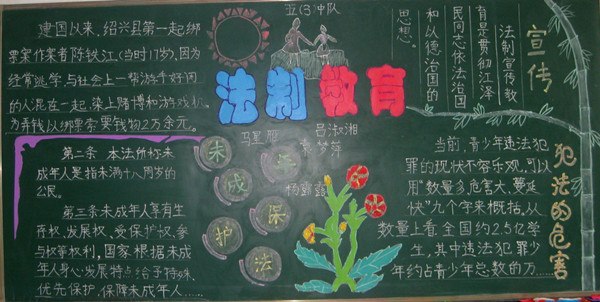 建国以来,绍兴县第一起绑
票案作案者陈铁江(当时17岁),因
经常逃学,与社会上一帮游手好闲
的人混在一起,染上赌博和游戏机,
为弄钱以绑票索要钱物2万余元。
第二条 本法所称未
成年人是指未满十八周岁的
公民。
第三条未成年人享有生
存权、发展权、受保护权、参
与权等权利,国家根据未成
年人身心发展特点给予特殊、
优先保护,保障未成年人……
五(3)中队
法制教育
马里雁
吕淑湘
袁梦萍
杨露露
未
成
年
保
护
法
宣传
法制宣传教
育是贯彻江泽
民同志依法治国
和以德治国的
思想。
犯法的危害
当前,青少年违法犯
罪的现状不容乐观,可以
用"数量多危害大,蔓延
快"九个字来概括,从
数量上看全国约2.5亿学
生,其中违法犯罪少
年约占青少年总数的万……